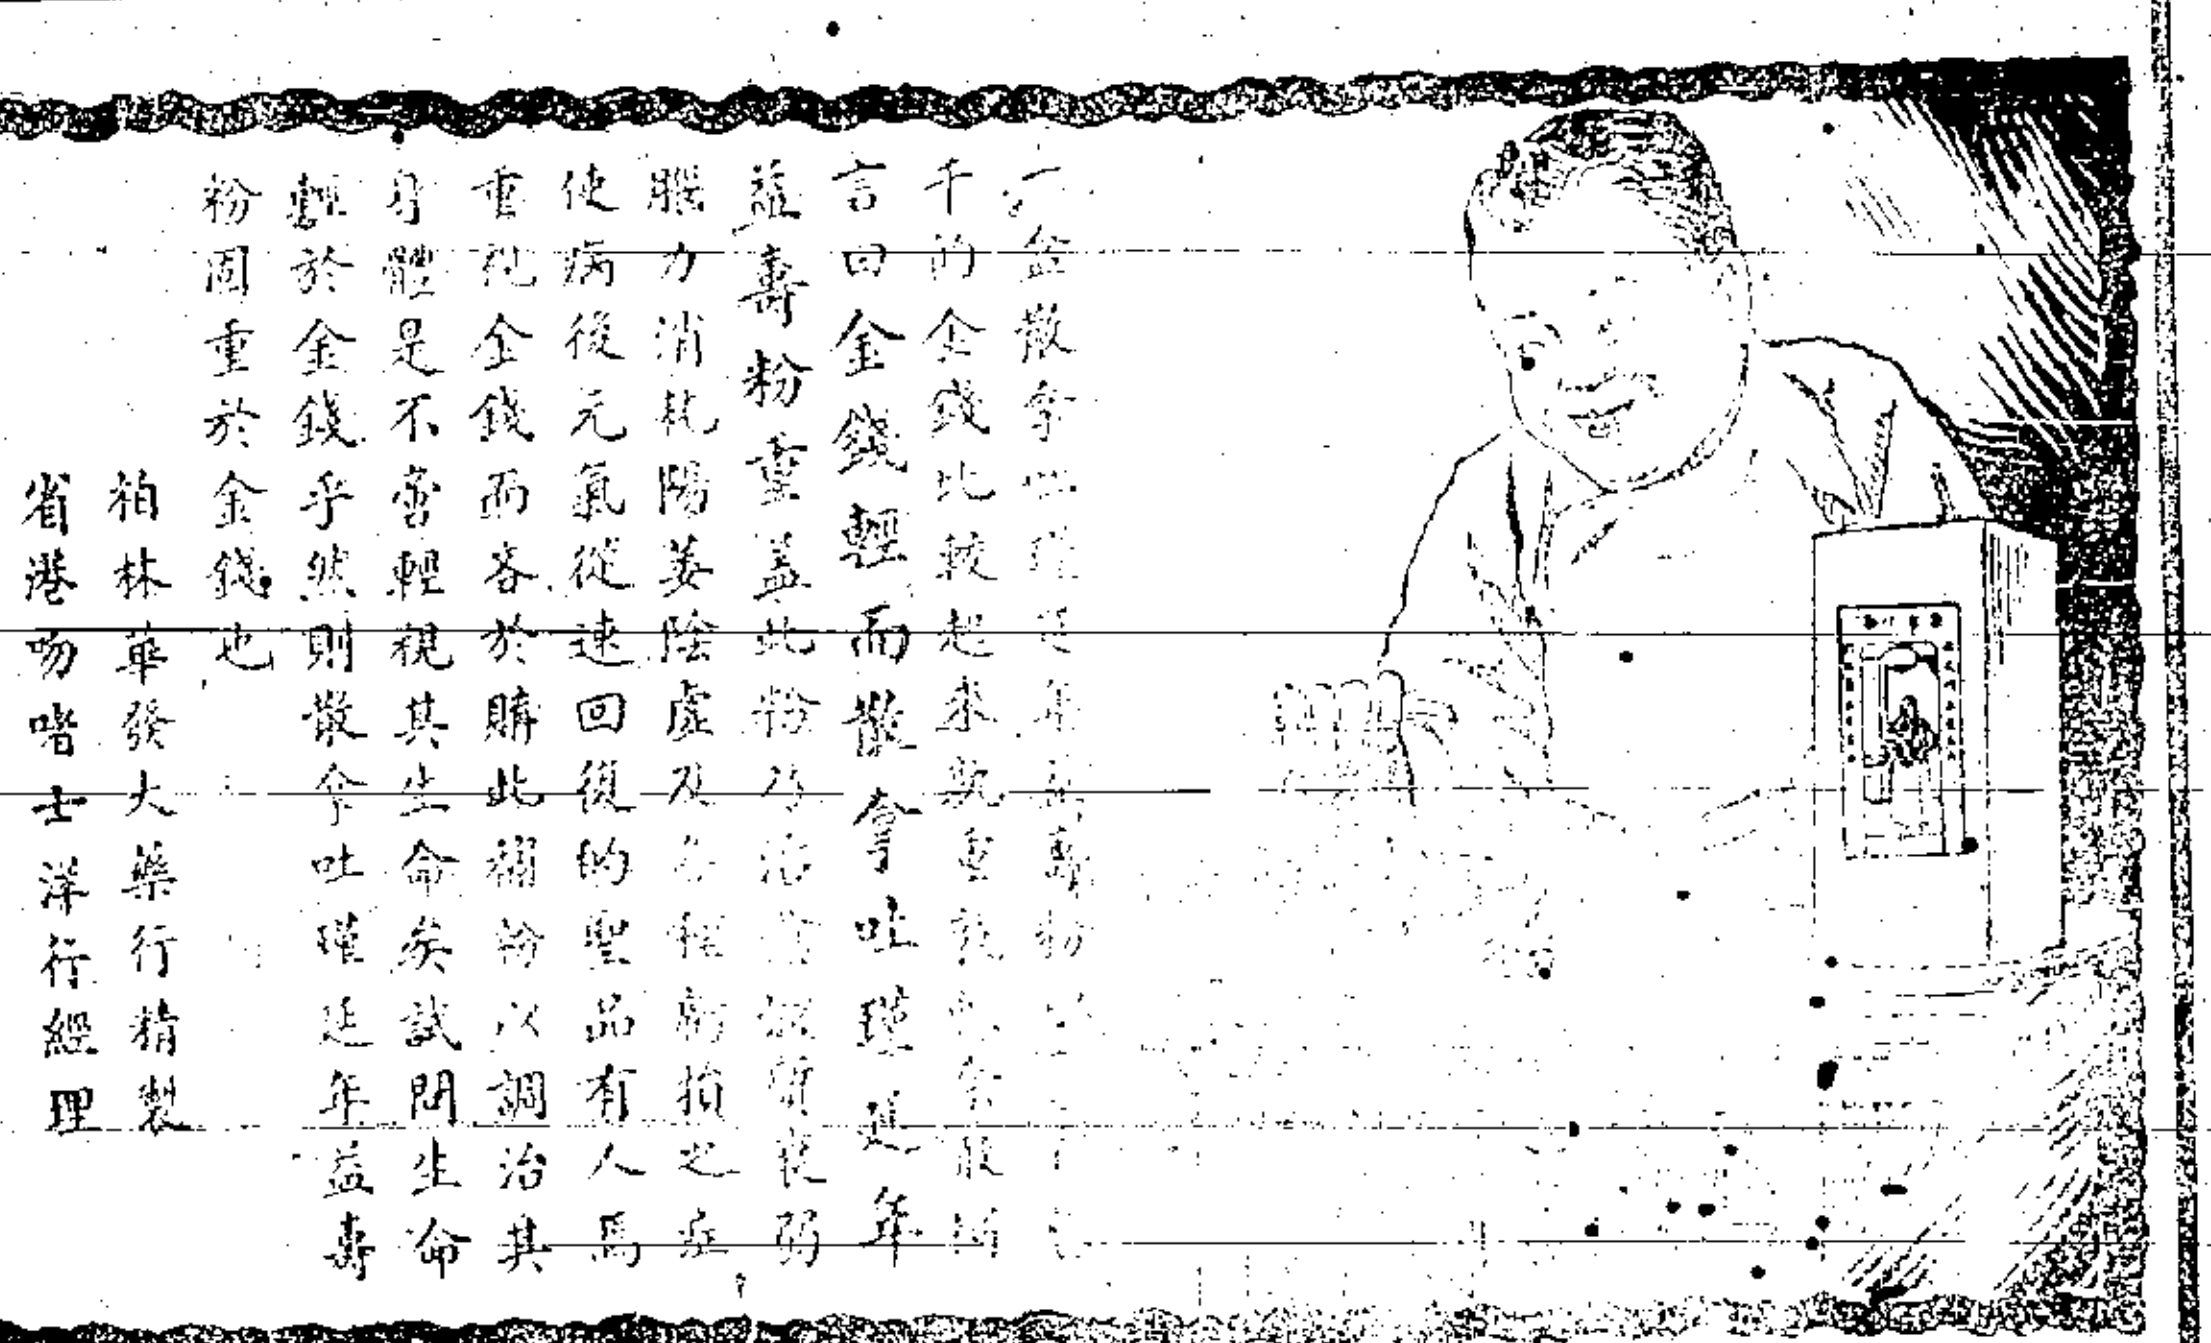 一盆散拿吐瑾延年益壽粉
千的金錢比較起來孰重孰
言曰金錢輕而散拿吐瑾延年
益壽粉重蓋此粉乃治衰弱
腦力消耗陽萎陰虛及各種之症
使病後元氣從速回復的聖品有人焉
重視金錢而吝於購此補粉以調治其
身體是不啻輕視其生命矣試問生命
輕於金錢乎然則散拿吐瑾延年益壽
粉固重於金錢也
柏林華發大藥行精製
省港吻喈士洋行經理